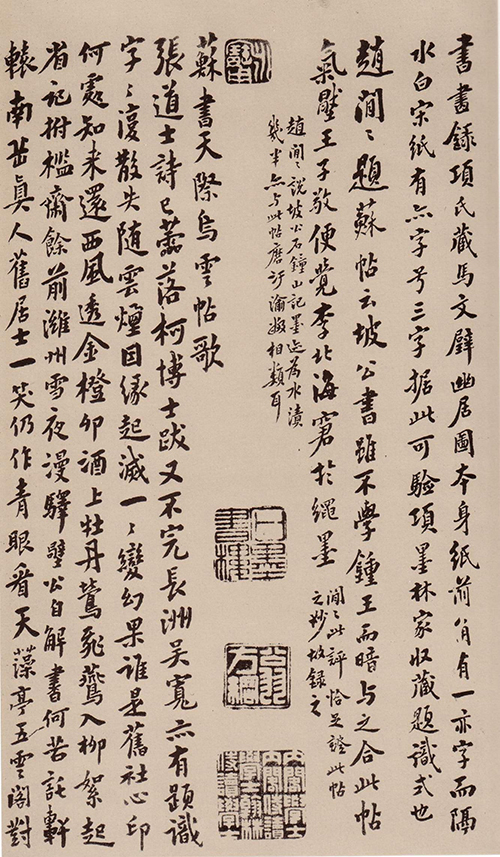 書書錄項氏藏馬文璧幽居圖本身紙前角有一亦字而隔
水白宋紙有亦字号三字据此可驗項墨林家收藏題識式也
趙閒〻題蘇帖云坡公書雖不學鍾王而暗與之合此帖
氣壓王子敬便覺李北海窘於繩墨
閒〻此評恰足證此帖
之妙故錄之
趙閒〻說坡公石鐘山記墨迹為水漬
幾半亦与此帖
相類耳
蘇書天際烏雲帖歌
張道士詩已舊落柯博士跋又不完長洲吴寬亦有題識
字〻復散失随雲煙因緣起滅一〻變幻果誰是舊社心印
何處知来還西風透金橙卯酒上牡丹鶯飛燕入柳絮起
省記柎檻齋餘前濰州雪夜漫驛壁公自解書何苦託軒
轅南岳真人舊居士一笑仍作青眼看天藻亭五雲閣對